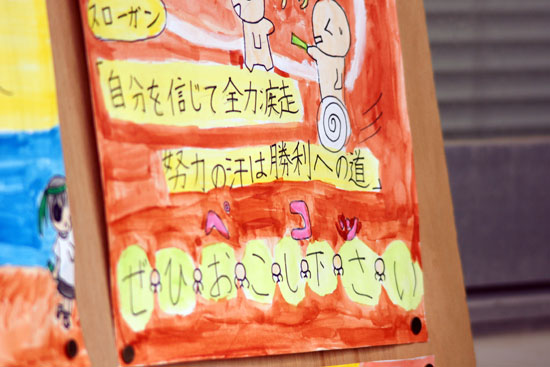 スローガン
「自分を信じて全力疾走
努力の汗は勝利への道」
ペコッ
ぜひおこし下さい